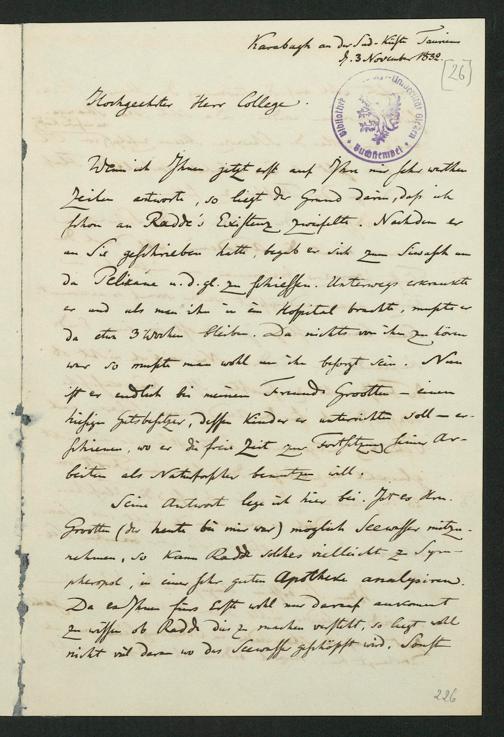 Karabagh an der Süd-Küste Tauriens
d. 3 November 1852
[26]
Bibliothek Universität Giessen
Buchstempel
Hochgeehrter Herr College.
Wenn ich Ihnen jetzt erst auf Ihre mir sehr werthen
Zeilen antworte, so liegt der Grund darin, daß ich
schon an Radde's Existenz zweifelte. Nachdem er
an Sie geschrieben hatte, begab er sich zum Siwasch um
da Pelikane u. d. gl. zu schiessen. Unterwegs erkrankte
er und als man ihn in ein Hospital brachte, mußte er
da etwa 3 Wochen bleiben. Da nichts von ihm zu hören
war so mußte man wohl um ihn besorgt sein. Nun
ist er endlich bei meinem Freunde Grootten – einem
hiesigen Gutsbesitzer, dessen Kinder er unterrichten soll – er-
schienen, wo er die freie Zeit zur Fortsetzung seiner Ar-
beiten als Naturforscher benutzen will.
Seine Antwort lege ich hier bei. Ist es Hrn.
Grootten (der heute bei mir war) möglich Seewasser mitzu-
nehmen, so kann Radde solches vielleicht z. Sym-
pheropol, in einer sehr guten Apotheke analysiren.
Da es Ihnen fürs Erste wohl nur darauf ankommt
zu wissen ob Radde dies z. machen versteht, so liegt wohl
nicht viel daran wo das Seewasser geschöpft wird. Sonst
226